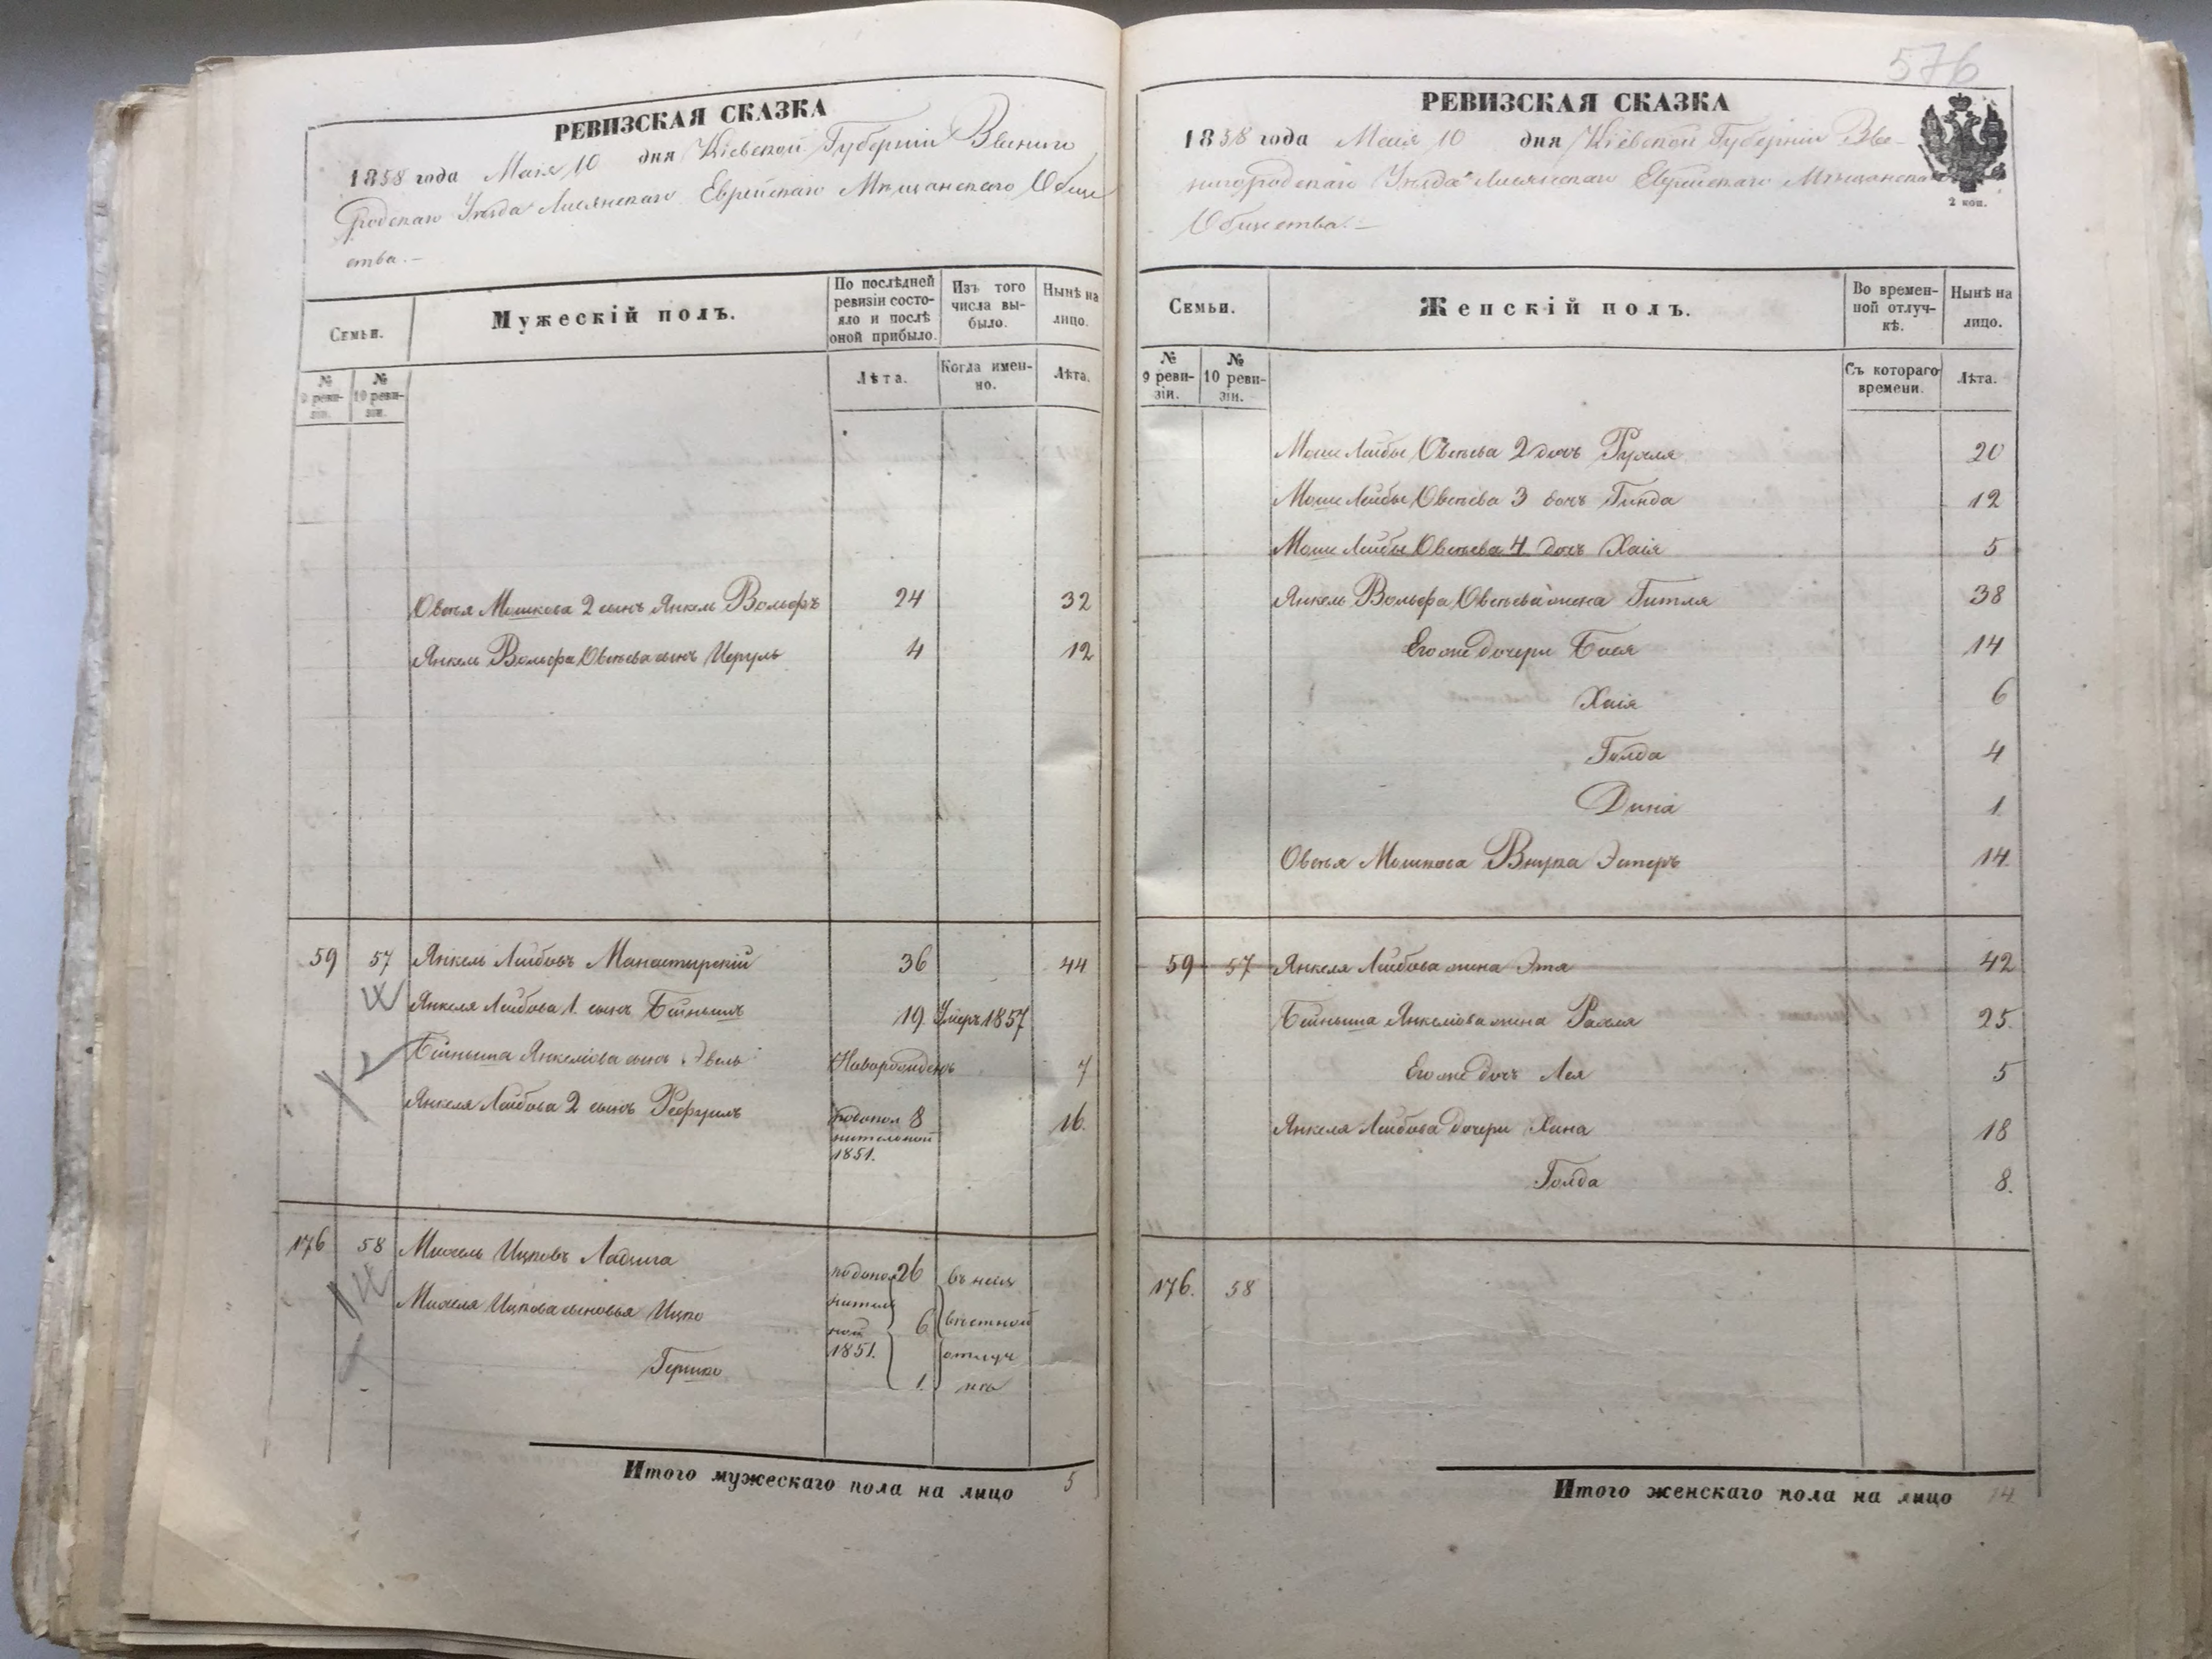 РЕВИЗСКАЯ СКАЗКА
1858 года Маія 10 дня Кіевской Губерніи Звениго
родскаго Уѣзда Лисянскаго Еврейскаго Мѣщанскаго Обще
ства.—
Семьи.
Мужескій полъ.
По послѣдней ревизіи состояло и послѣ оной прибыло.
Изъ того числа выбыло.
Нынѣ на лицо.
№ 9 ревизіи.
№ 10 ревизіи.
Лѣта.
Когда именно.
Лѣта.
Овсѣя Мошкова 2 сынъ Янкель Вольфъ 24 32
Янкель Вольфа Овсѣева сынъ Исруль 4 12
59 57 Янкель Лейбовъ Манастырскій 36 44
Янкеля Лейбова 1. сынъ Бейнышъ 19. Умеръ 1857
Бейныша Янкеліова сынъ Эвель Новорожденъ 7
Янкеля Лейбова 2 сынъ Рефуилъ по допол 8 16.
нительной
1851.
176 58 Михель Ицковъ Ладыга по допол 26 въ неиз
Михеля Ицкова сыновья Ицко нитель 6 вѣстной
ной
1851. отлуч
Гершко 1. кѣ
Итого мужескаго пола на лицо 5
576
РЕВИЗСКАЯ СКАЗКА
1858 года Маія 10 дня Кіевской Губерніи Зве-
нигородскаго Уѣзда Лисянскаго Еврейскаго Мѣщанскаго
Общества.—
2 коп.
Семьи.
Женскій полъ.
Во временной отлучкѣ.
Нынѣ на лицо.
№ 9 ревизіи.
№ 10 ревизіи.
Съ котораго времени.
Лѣта.
Моше Лейбы Овсѣева 2 дочь Рухля 20
Моше Лейбы Овсѣева 3 дочь Гинда 12
Моше Лейбы Овсѣева 4 дочь Хаія 5
Янкель Вольфа Овсѣева жена Гитля 38
Его же дочери Бася 14
Хаія 6
Голда 4
Дина 1
Овсѣя Мошкова Внука Эстеръ 14.
59 57 Янкеля Лейбова жена Этя 42
Бейныша Янкеліова жена Рахля 25.
Его же дочь Лея 5
Янкеля Лейбова дочери Хана 18
Голда 8.
176. 58
Итого женскаго пола на лицо 14